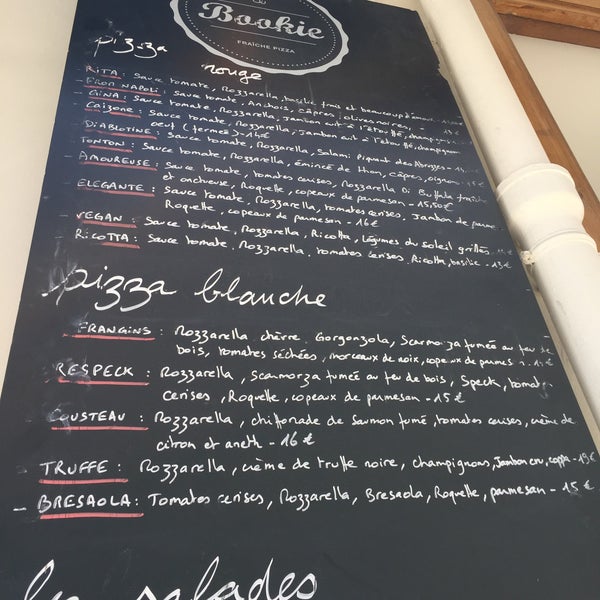 Bookie
FRAÎCHE PIZZA
pizza rouge
RITA: Sauce tomate, Mozzarella, basilic frais et beaucoup d'amour
- PRON NAPOLI: Sauce tomate, Anchois, câpres, olives noires
- GINA: Sauce tomate, Mozzarella, Jambon cuit à l'étouffé, champignons
- CALZONE: Sauce tomate, Mozzarella, Jambon cuit à l'étouffé, champignon
oeuf (fermée) - 14€
DIABLOTINE: Sauce tomate, Mozzarella, Salami Piquant des Abruzzes
TONTON: Sauce tomate, Mozzarella, Émincé de thon, Câpres, oignon
- AMOUREUSE: Sauce tomate, tomates cerises, Mozzarella Di Buffala fraîche
et onctueuse, Roquette, copeaux de parmesan - 15,50€
ELEGANTE: Sauce tomate, Mozzarella, tomates cerises, Jambon de parme
Roquette, copeaux de parmesan - 16€
- VEGAN: Sauce tomate, Mozzarella, Ricotta, Légumes du soleil grillés
- RICOTTA: Sauce tomate, Mozzarella, tomates cerises, Ricotta, basilic - 13€
pizza blanche
FRANGINS: Mozzarella chèvre Gorgonzola, Scarmorza fumée au feu de
bois, tomates séchées, morceaux de noix, copeaux de parmesan
RESPECK: Mozzarella, Scanmorza fumée au feu de bois, Speck, tomates
cerises, Roquette, copeaux de parmesan - 15€
COUSTEAU: Mozzarella, chiffonade de Saumon fumé, tomates cerises, crème de
citron et aneth - 16€
- TRUFFE: Mozzarella, crème de truffe noire, champignons, Jambon cru, coppa - 19€
- BRESAOLA: Tomates cerises, Mozzarella, Bresaola, Roquette, parmesan - 15€
les salades